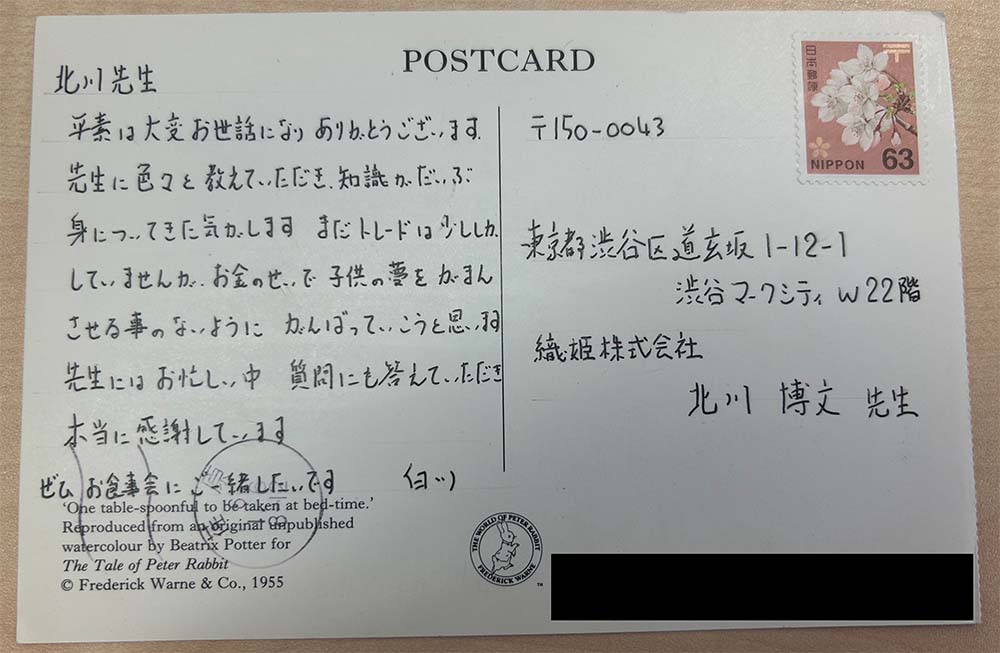 POSTCARD
北川先生
平素は大変お世話になりありがとうございます.
先生に色々と教えていただき、知識がだいぶ
身についてきた気がします まだトレードは少ししか
していませんが、お金のせいで子供の夢をがまん
させる事のないように がんばっていこうと思います
先生にはお忙しい中 質問にも答えていただき
本当に感謝しています
ぜひ お食事会にご一緒したいです
'One table-spoonful to be taken at bed-time.'
Reproduced from an original unpublished
watercolour by Beatrix Potter for
The Tale of Peter Rabbit
© Frederick Warne & Co., 1955
日本郵便
NIPPON 63
〒150-0043
東京都渋谷区道玄坂1-12-1
渋谷マークシティ W22階
織姫株式会社
北川 博文 先生
THE WORLD OF PETER RABBIT
FREDERICK WARNE
TM